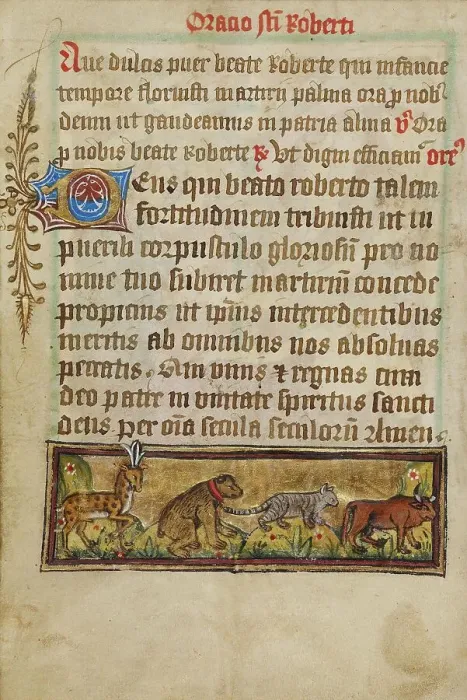 Oracio sti Roberti
Aue dulcis puer beate Roberte qui infancie
tempore floruisti martirii palma ora p nob
deum ut gaudeamus in patria alma V Ora
p nobis beate Roberte R Vt digni efficiam ore
Deus qui beato roberto talem
fortitudinem tribuisti ut in
puerili corpusculo gloriosum pro no
mine tuo subiret martirium concede
propicius ut ipius intercedentibus
meritis ab omnibus nos absoluas
peccatis. Qui viuis et regnas cum
deo patre in vnitate spiritus sancti
deus per oia secula seculorum Amen